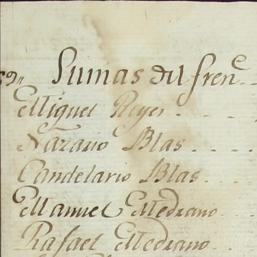 Sumas del fren^e
Miguel Reyes
Nazario Blas
Candelario Blas
Manuel Medrano
Rafael Medrano